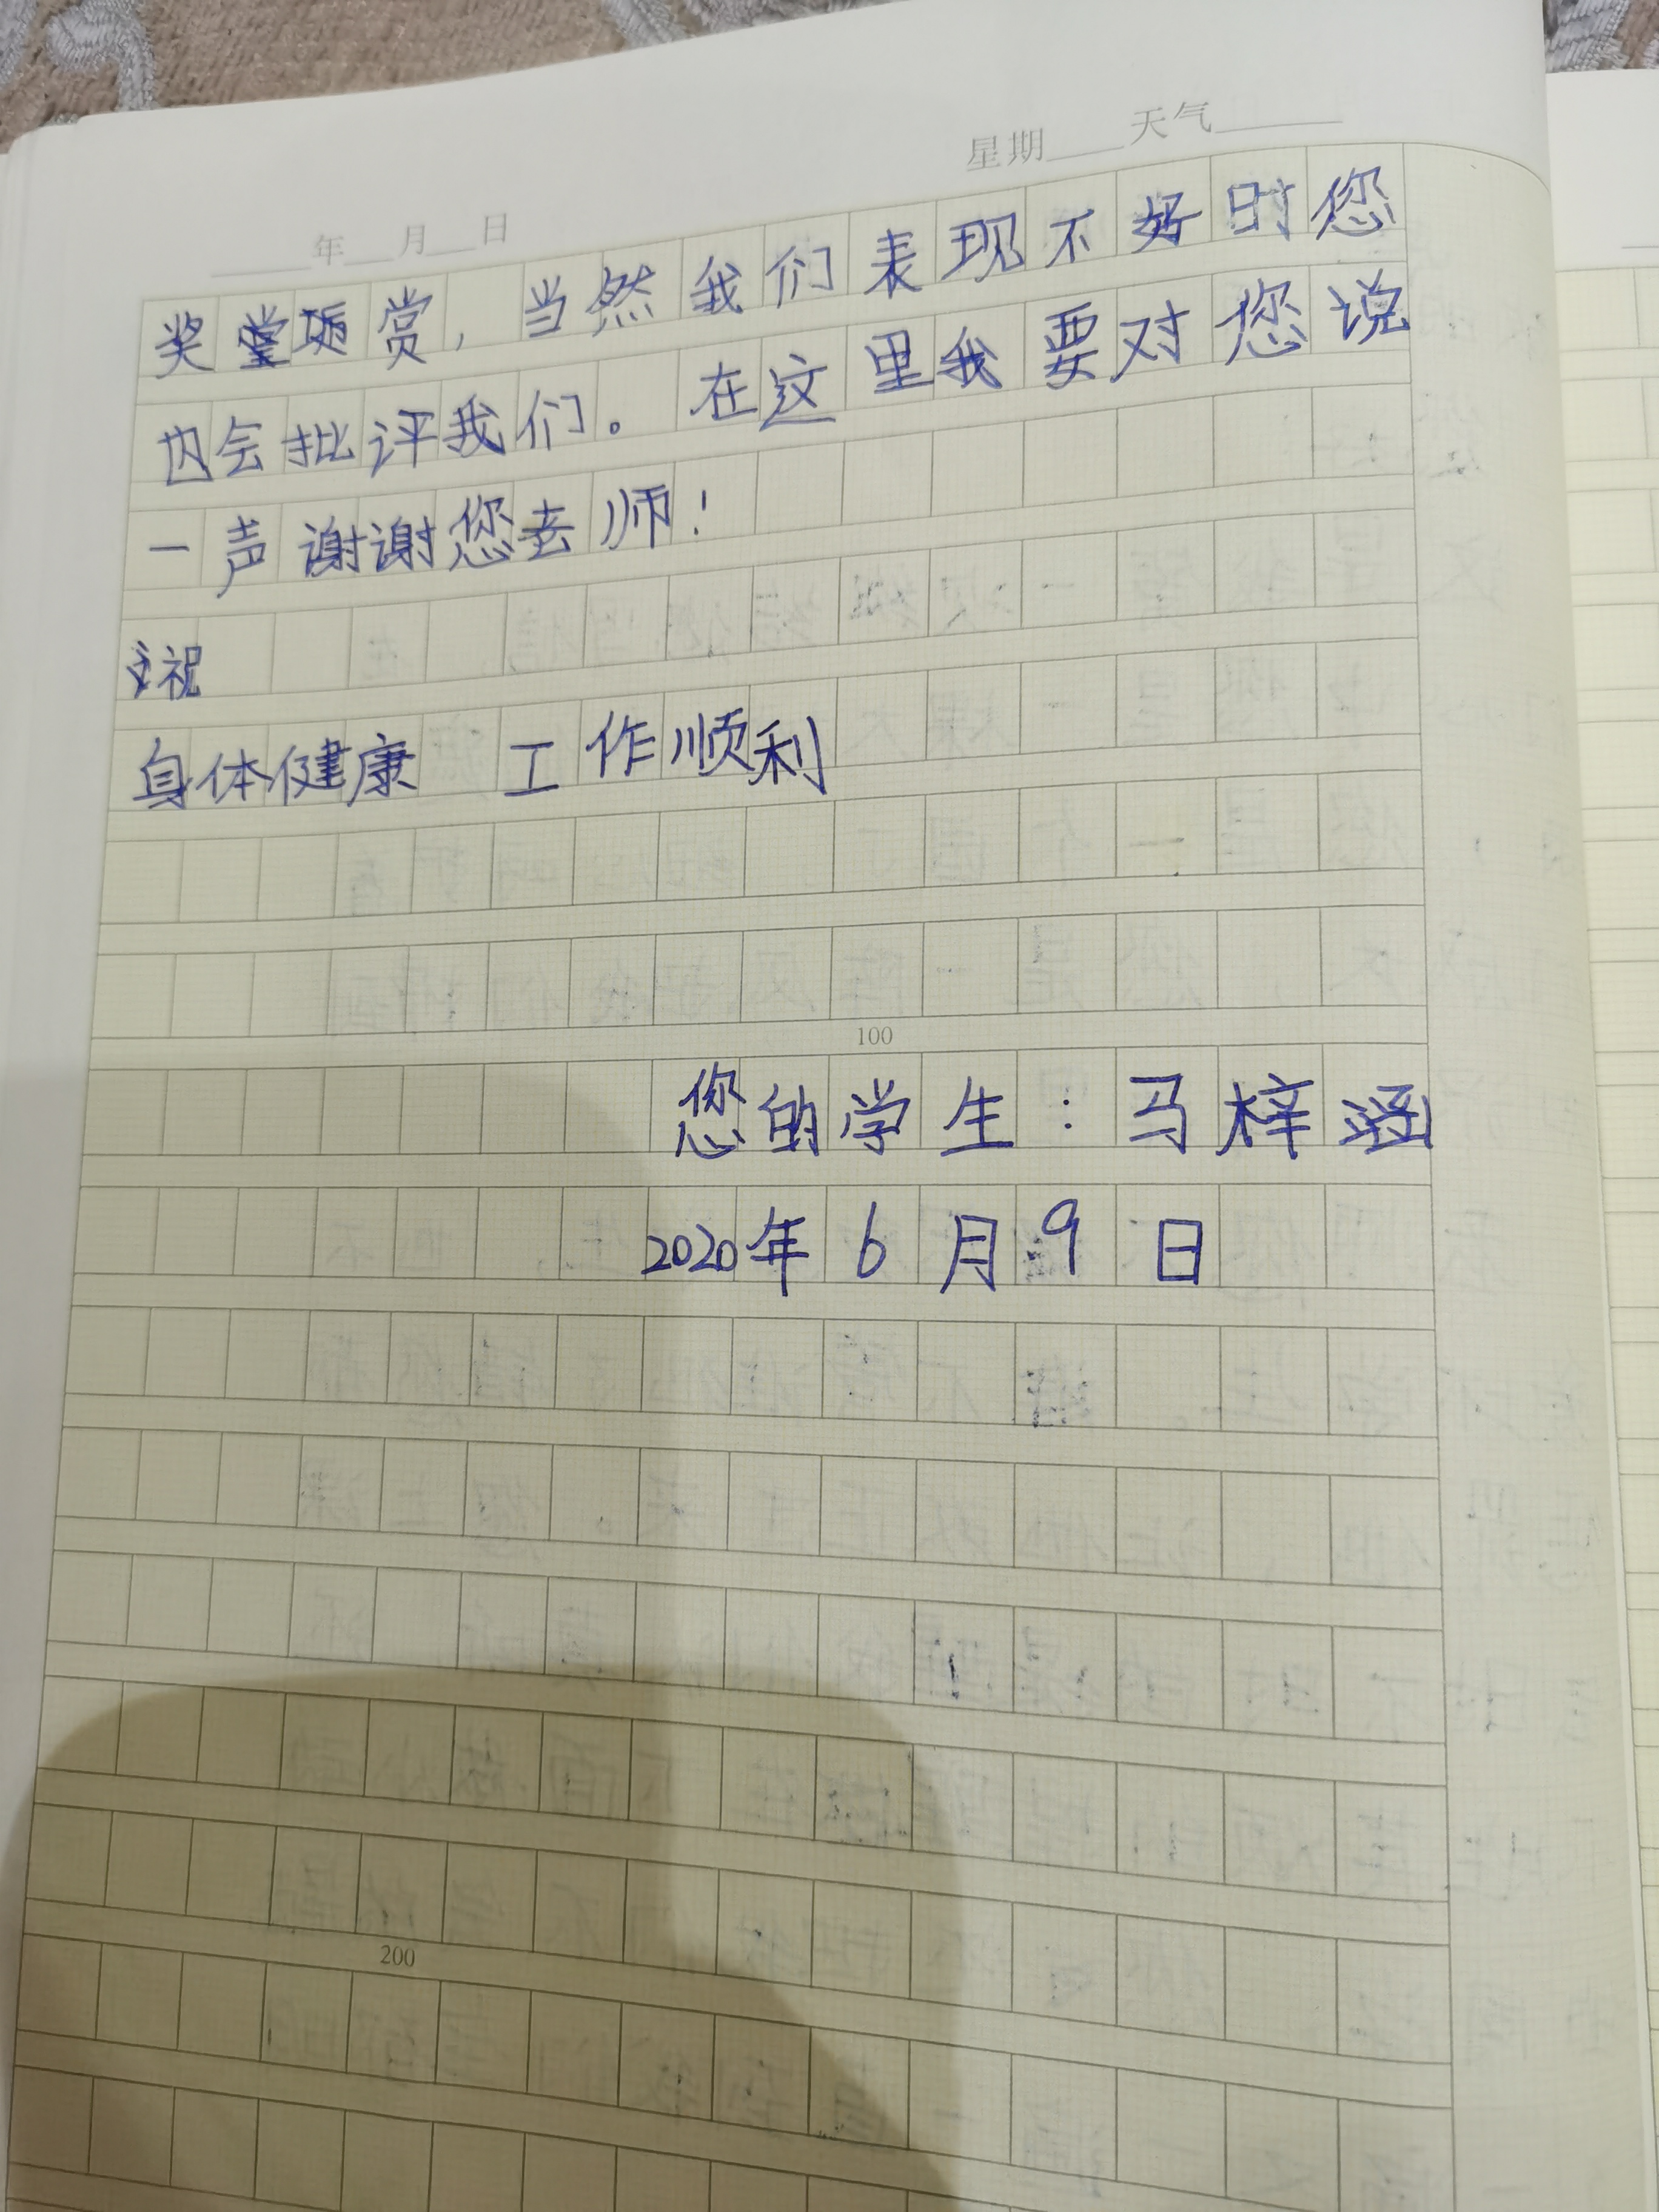 星期 天气
年 月 日
奖 赏，当然我们表现不好时您
内会批评我们。在这里我要对您说
一声谢谢您老师！
祝
身体健康 工作顺利
100
您的学生：马梓涵
2020年6月9日
200